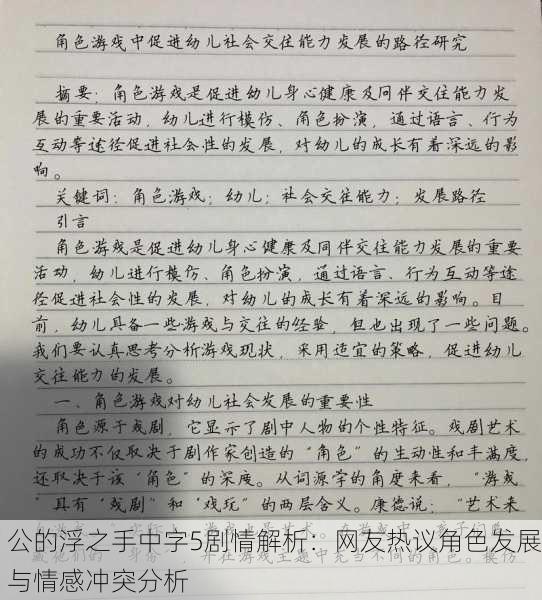 角色游戏中促进幼儿社会交往能力发展的路径研究
摘要：角色游戏是促进幼儿身心健康及同伴交往能力发
展的重要活动，幼儿进行模仿、角色扮演，通过语言、行为
互动等途径促进社会性的发展，对幼儿的成长有着深远的影
响。
关键词：角色游戏；幼儿；社会交往能力；发展路径
引言
角色游戏是促进幼儿身心健康及同伴交往能力发展的重要
活动，幼儿进行模仿、角色扮演，通过语言、行为互动等途
径促进社会性的发展，对幼儿的成长有着深远的影响。目
前，幼儿具备一些游戏与交往的经验，但也出现了一些问题。
我们要认真思考分析游戏现状，采用适宜的策略，促进幼儿
交往能力的发展。
一、角色游戏对幼儿社会发展的重要性
角色源于戏剧，它显示了剧中人物的个性特征。戏剧艺术
的成功不仅取决于剧作家创造的“角色”的生动性和丰满度，
还取决于该“角色”的深度。从词源学的角度来看，“游戏
”具有“戏剧”和“戏玩”的两层含义。康德说：“艺术来
公的浮之手中字5剧情解析：网友热议角色发展
与情感冲突分析